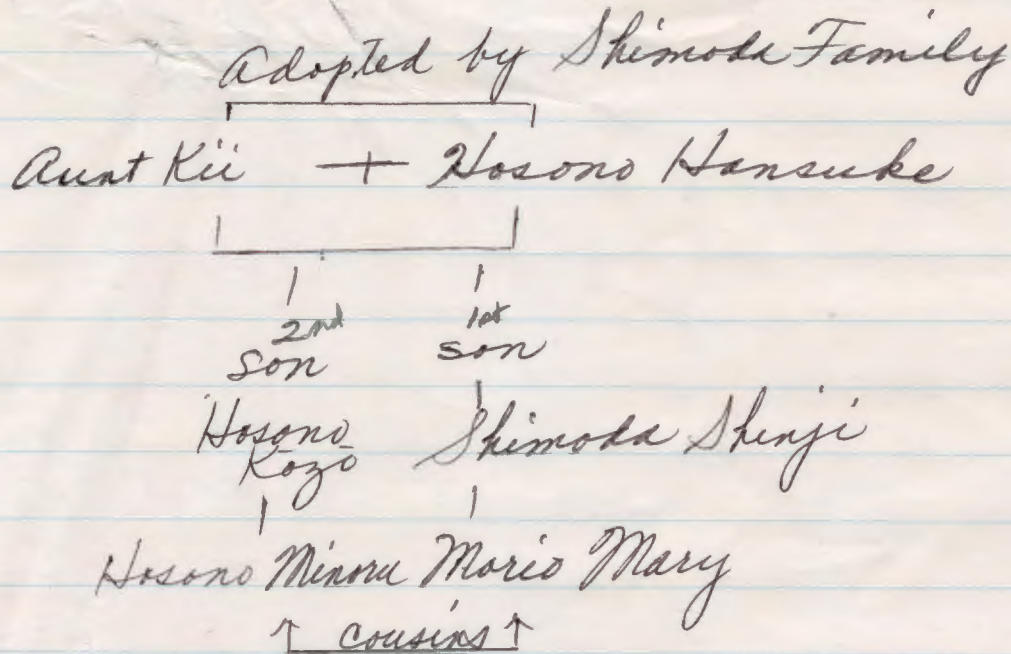 adopted by Shimoda Family
Aunt Kii + Hosono Hansuke
2nd 1st
son son
Hosono Shimoda Shinji
Kozo
Hosono Minoru Mario Mary
↑ cousins ↑